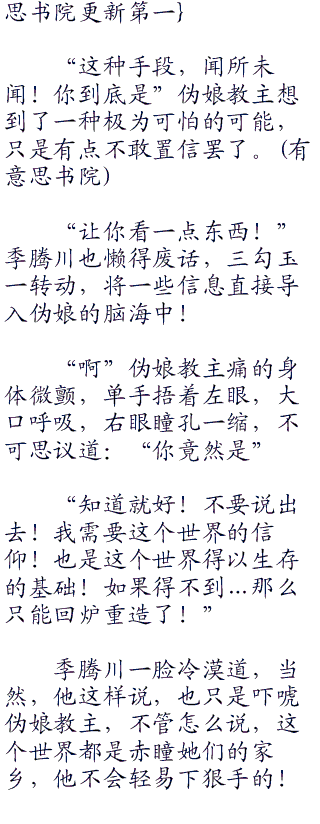 思书院更新第一}
“这种手段，闻所未
闻！你到底是”伪娘教主想
到了一种极为可怕的可能，
只是有点不敢置信罢了。(有
意思书院)
“让你看一点东西！”
季腾川也懒得废话，三勾玉
一转动，将一些信息直接导
入伪娘的脑海中！
“啊”伪娘教主痛的身
体微颤，单手捂着左眼，大
口呼吸，右眼瞳孔一缩，不
可思议道：“你竟然是”
“知道就好！不要说出
去！我需要这个世界的信
仰！也是这个世界得以生存
的基础！如果得不到...那么
只能回炉重造了！”
季腾川一脸冷漠道，当
然，他这样说，也只是吓唬
伪娘教主，不管怎么说，这
个世界都是赤瞳她们的家
乡，他不会轻易下狠手的！